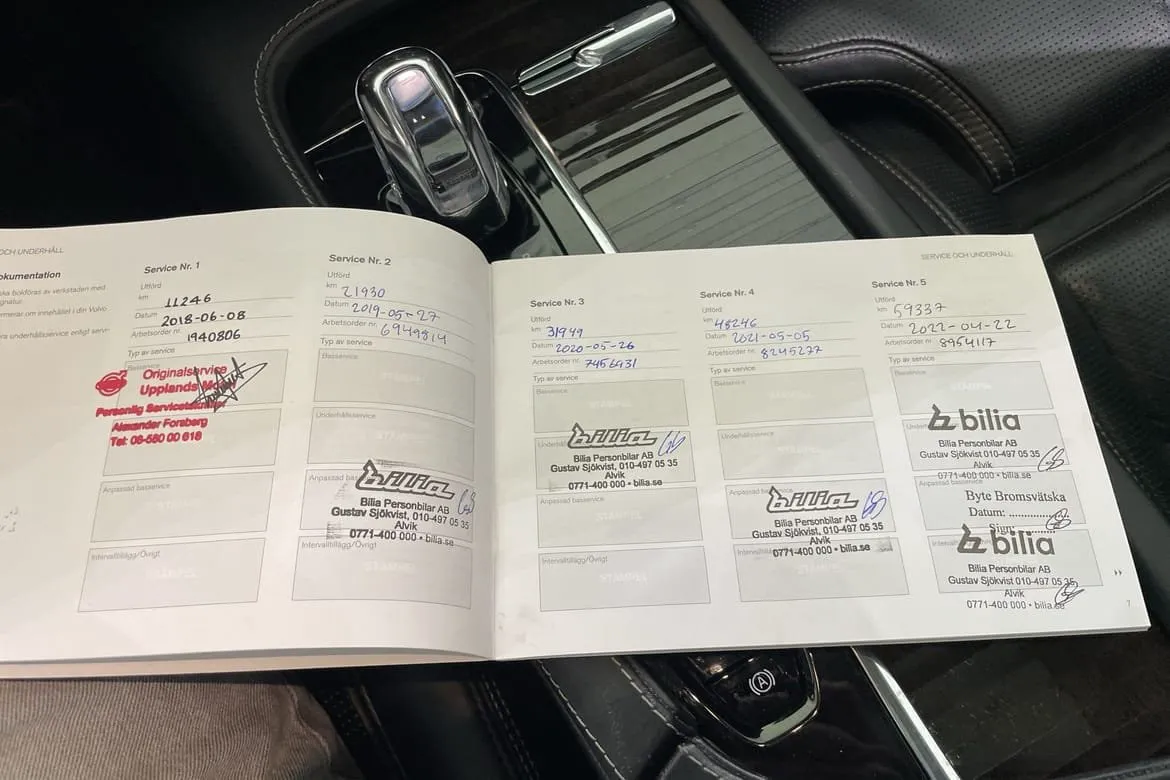 OCH UNDERHÅLL
okumentation
ka bokföras av verkstaden med
gnatur.
ormerar om innehållet i din Volvo
ra underhållsservice enligt servi-
Service Nr. 1
Utförd
km 11246
Datum 2018-06-08
Arbetsorder nr. 1940806
Typ av service
Basservice
Originalservice
Upplands Mo
Personlig Servicetekniker
Alexander Forsberg
Tel: 08-580 00 618
Anpassad basservice
Intervalltillägg/Övrigt
STÄMPEL
Service Nr. 2
Utförd
km 21930
Datum 2019-05-27
Arbetsorder nr. 6949814
Typ av service
Basservice
STÄMPEL
Underhållsservice
Anpassad bas
bilia
Bilia Personbilar AB
Gustav Sjökvist, 010-497 05 35
Alvik
0771-400 000 • bilia.se
Intervalltillägg/Övrigt
STÄMPEL
SERVICE OCH UNDERHÅLL
Service Nr. 3
Utförd
km 31949
Datum 2020-05-26
Arbetsorder nr. 7456931
Typ av service
Basservice
STÄMPEL
Underhå
bilia
Bilia Personbilar AB
Gustav Sjökvist, 010-497 05 35
Alvik
0771-400 000 • bilia.se
Anpassad basservice
STÄMPEL
Intervalltillägg/Övrigt
STÄMPEL
Service Nr. 4
Utförd
km 48246
Datum 2021-05-05
Arbetsorder nr. 8245277
Typ av service
Basservice
STÄMPEL
Underhållsservice
STÄMPEL
Anpassad bas
bilia
Bilia Personbilar AB
Gustav Sjökvist, 010-497 05 35
Alvik
0771-400 000 • bilia.se
Intervalltillägg/Övrigt
STÄMPEL
Service Nr. 5
Utförd
km 59337
Datum 2022-04-22
Arbetsorder nr. 8954117
Typ av service
Basservice
STÄMPEL
bilia
Bilia Personbilar AB
Gustav Sjökvist 010-497 05 35
Alvik
0771-400 000 • bilia.se
Anpassad basservice
Byte Bromsvätska
Datum: ..............
Sign: ..............
bilia
Bilia Personbilar AB
Gustav Sjökvist 010-497 05 35
Alvik
0771-400 000 • bilia.se
7
A